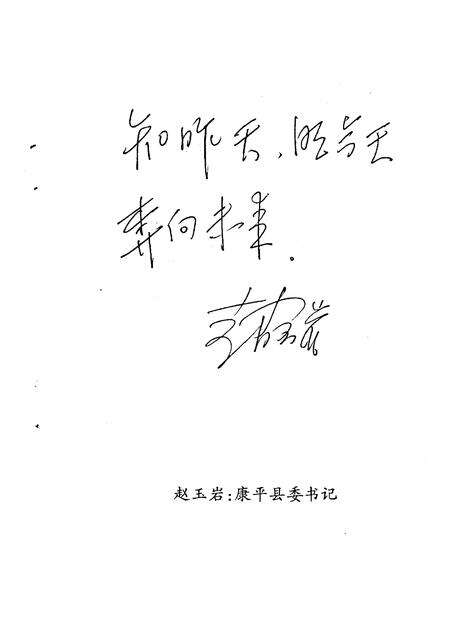 知昨天、明今天
奔向未来.
赵玉岩
赵玉岩:康平县委书记